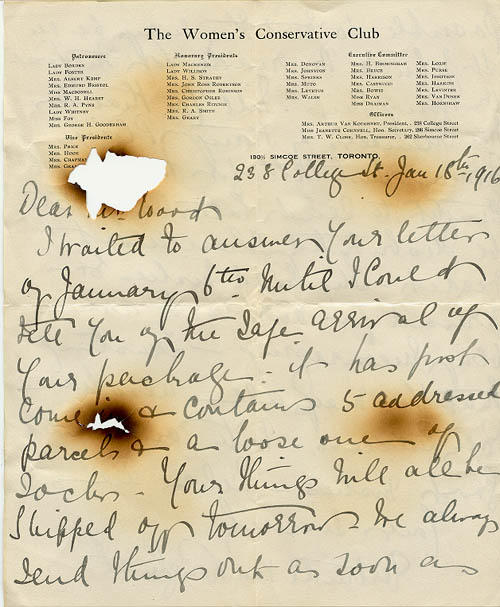 The Women's Conservative Club
Patronesses
Lady Borden
Lady Foster
Mrs. Albert Kemp
Mrs. Edmund Bristol
Mrs. Macdonell
Mrs. W. H. Hearst
Mrs. R. A. Pyne
Lady Whitney
Miss Foy
Mrs. George H. Gooderham
Vice Presidents
Mrs. Price
Mrs.
Mrs.
Mrs.
Honorary Presidents
Lady Mackenzie
Lady Willison
Mrs. H. S. Strathy
Mrs. John Ross Robertson
Mrs. Christopher Robinson
Mrs. Gordon Osler
Mrs. Charles Ritchie
Mrs. R. A. Smith
Mrs. Geary
Executive Committee
Mrs. Donovan
Mrs. Johnston
Mrs. Spriggs
Mrs.
Mrs.
Mrs. Walsh
Mrs. H. Birmingham
Mrs. Bruce
Mrs. Harrison
Mrs. Carswell
Mrs. Bowie
Miss Ryan
Miss Deadman
Mrs. Loudi
Mrs. Purse
Mrs.
Mrs.
Mrs.
Mrs. Van Dusen
Mrs.
Officers
Mrs. Arthur Van Koughnet, President, 238 College Street
Miss Jeanette Cornnell, Hon. Secretary, 286 Simcoe Street
Mrs. T. W. Close, Hon. Treasurer, 362 Sherbourne Street
190½ Simcoe Street, Toronto,
238 College St. Jan 18th, 1916
Dear Wood
I waited to answer your letter
of January 6th until I could
tell you of the safe arrival of
your package - it has just
come & contains 5 addressed
parcels & a loose one of
socks - Your things will all be
shipped off tomorrow - We always
send things out as soon as